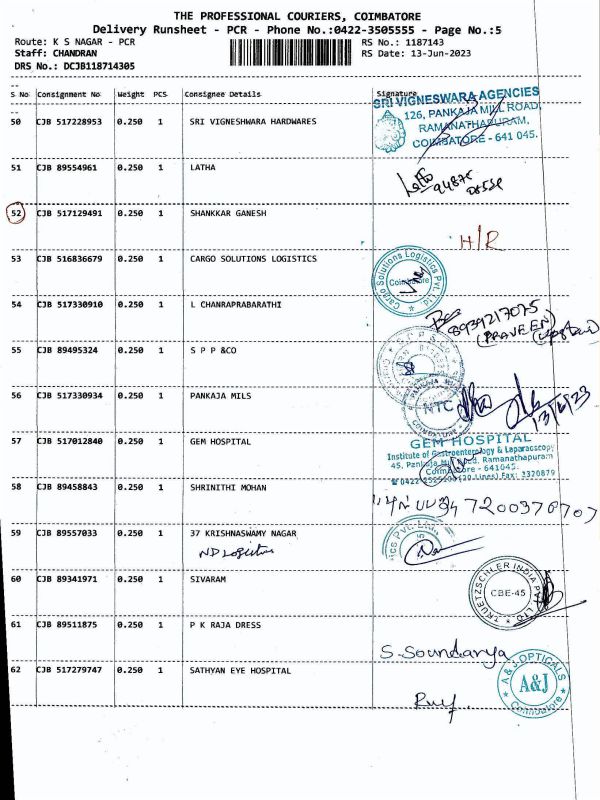 THE PROFESSIONAL COURIERS, COIMBATORE
Delivery Runsheet - PCR - Phone No.:0422-3505555 - Page No.:5
Route: K S NAGAR - PCR RS No.: 1187143
Staff: CHANDRAN RS Date: 13-Jun-2023
DRS No.: DCJB118714305
S No Consignment No Weight PCS Consignee Details Signature
SRI VIGNESWARA AGENCIES
126, PANKAJA MILL ROAD,
RAMANATHAPURAM,
COIMBATORE - 641 045.
50 CJB 517228953 0.250 1 SRI VIGNESHWARA HARDWARES
51 CJB 89554961 0.250 1 LATHA
Latha
52 CJB 517129491 0.250 1 SHANKKAR GANESH
H/R
53 CJB 516836679 0.250 1 CARGO SOLUTIONS LOGISTICS
Cargo Solutions Logistics Pvt. Ltd.
Coimbatore
54 CJB 517330910 0.250 1 L CHANRAPRABARATHI
8939217075
(PRAVEEN)
55 CJB 89495324 0.250 1 S P P &CO
S P P & CO
56 CJB 517330934 0.250 1 PANKAJA MILS
NTC
13/6/23
57 CJB 517012840 0.250 1 GEM HOSPITAL
GEM HOSPITAL
Institute of Gastroenterology & Laparascopy
45, Pankaja Mill Rd, Ramanathapuram
Coimbatore - 641045.
0422 2325100 (20 Lines) Fax: 2320879
58 CJB 89458843 0.250 1 SHRINITHI MOHAN
7200378707
59 CJB 89557033 0.250 1 37 KRISHNASWAMY NAGAR
ND Logistics
60 CJB 89341971 0.250 1 SIVARAM
TRUETZSCHLER INDIA PVT. LTD.
CBE-45
61 CJB 89511875 0.250 1 P K RAJA DRESS
S. Soundarya
62 CJB 517279747 0.250 1 SATHYAN EYE HOSPITAL
A & J OPTICALS
A&J
Coimbatore